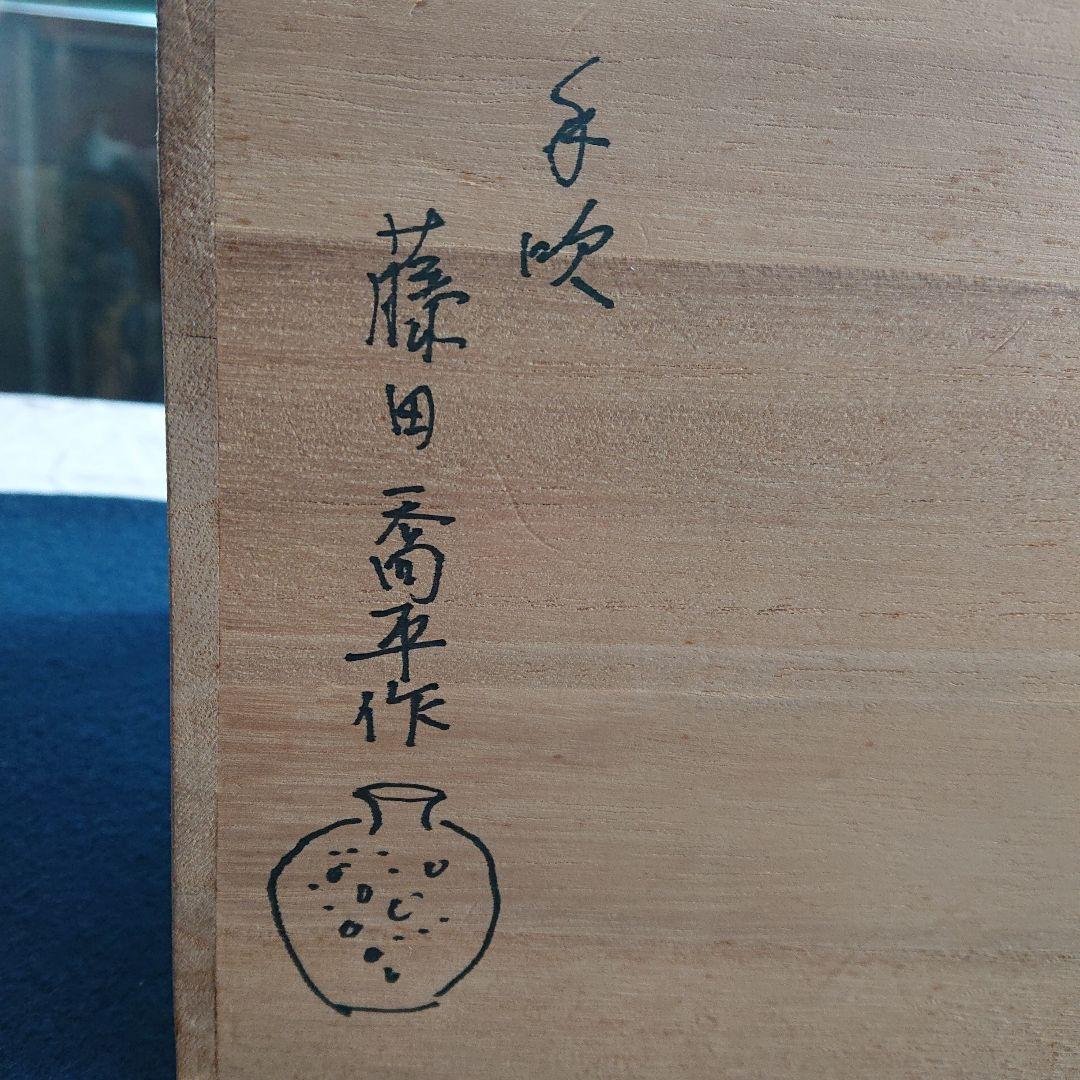 手吹
藤田喬平作